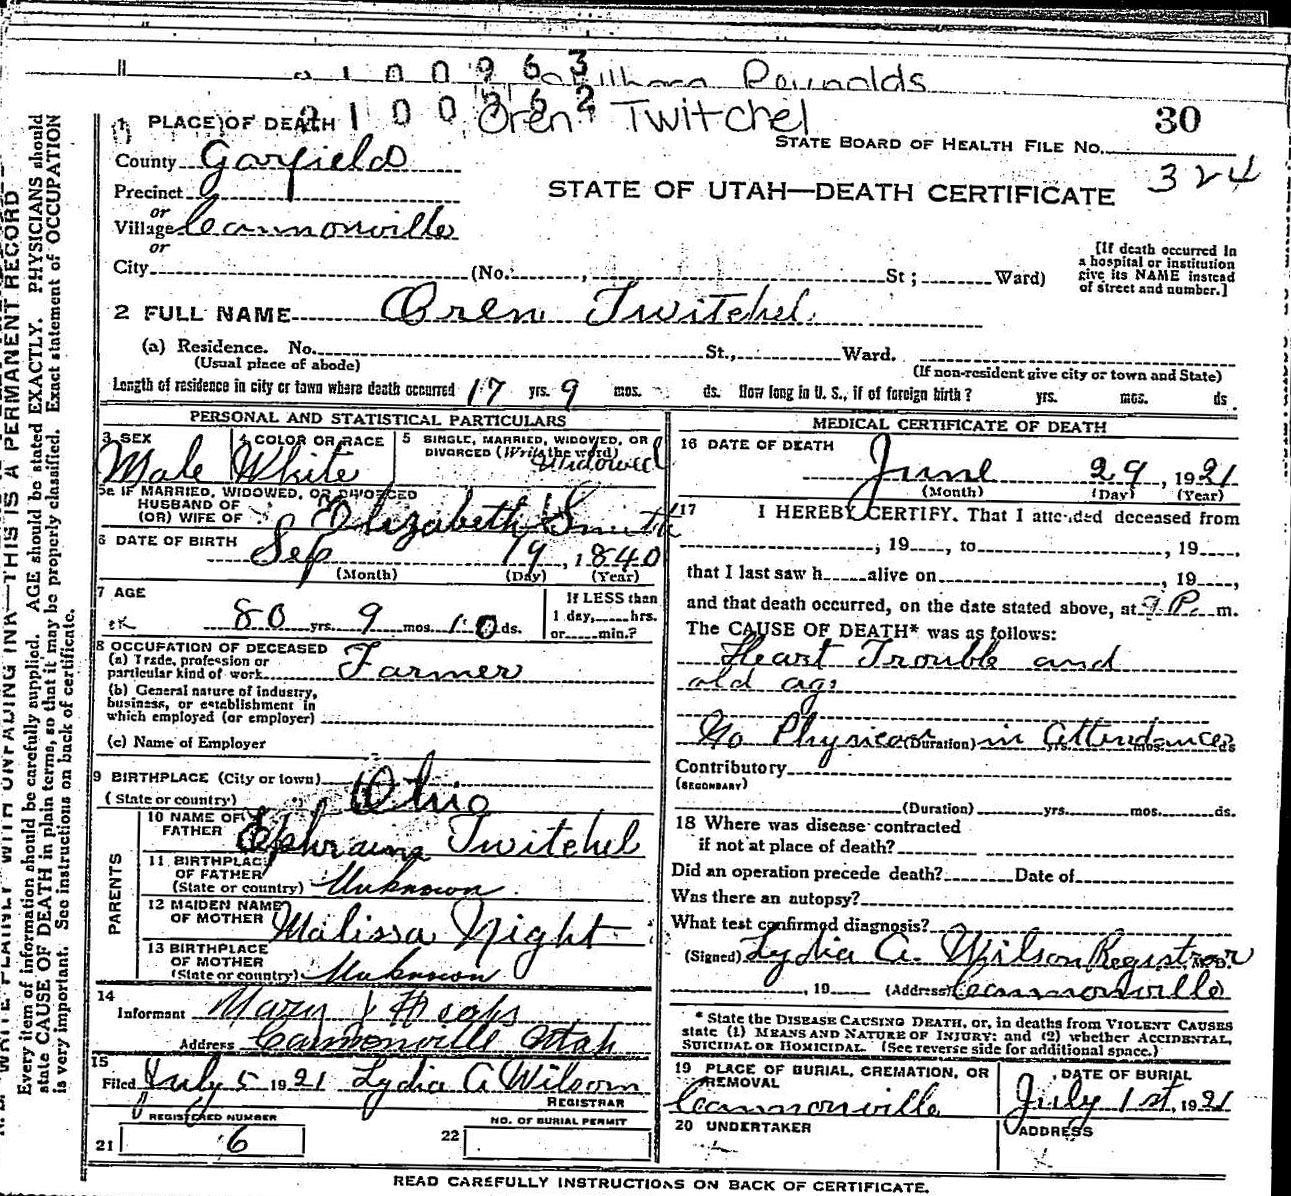 2100963 Reynolds
2100962 Oren Twitchel
30
1 PLACE OF DEATH
STATE BOARD OF HEALTH FILE No.
County Garfield
324
Precinct
STATE OF UTAH—DEATH CERTIFICATE
or
Village Cannonville
or
City (No. , St ; Ward)
[If death occurred in
a hospital or institution
give its NAME instead
of street and number.]
2 FULL NAME Oren Twitchel
(a) Residence. No. St., Ward.
(Usual place of abode)
(If non-resident give city or town and State)
Length of residence in city or town where death occurred 17 yrs. 9 mos. ds. How long in U. S., if of foreign birth? yrs. mos. ds.
PERSONAL AND STATISTICAL PARTICULARS
3 SEX
Male
4 COLOR OR RACE
White
5 SINGLE, MARRIED, WIDOWED, OR
DIVORCED (Write the word)
Widowed
5a IF MARRIED, WIDOWED, OR DIVORCED
HUSBAND OF
(OR) WIFE OF Elizabeth Smith
6 DATE OF BIRTH
Sep 19, 1840
(Month) (Day) (Year)
7 AGE
80 yrs. 9 mos. 10 ds.
If LESS than
1 day, hrs.
or min.?
8 OCCUPATION OF DECEASED
(a) Trade, profession or
particular kind of work Farmer
(b) General nature of industry,
business, or establishment in
which employed (or employer)
(c) Name of Employer
9 BIRTHPLACE (City or town)
(State or country) Ohio
PARENTS
10 NAME OF
FATHER Ephraim Twitchel
11 BIRTHPLACE
OF FATHER
(State or country) Unknown
12 MAIDEN NAME
OF MOTHER Malissa Night
13 BIRTHPLACE
OF MOTHER
(State or country) Unknown
14
Informant Mary J Heaps
Address Cannonville Utah
15
Filed July 5 1921 Lydia A Wilson
REGISTRAR
REGISTERED NUMBER
21 6
NO. OF BURIAL PERMIT
22
MEDICAL CERTIFICATE OF DEATH
16 DATE OF DEATH
June 29, 1921
(Month) (Day) (Year)
17 I HEREBY CERTIFY. That I attended deceased from
, 19 , to , 19 ,
that I last saw h alive on , 19 ,
and that death occurred, on the date stated above, at 9 P. m.
The CAUSE OF DEATH* was as follows:
Heart Trouble and
old age
No Physican in Attendance
(Duration) yrs. mos. ds
Contributory
(SECONDARY)
(Duration) yrs. mos. ds.
18 Where was disease contracted
if not at place of death?
Did an operation precede death? Date of
Was there an autopsy?
What test confirmed diagnosis?
(Signed) Lydia A. Wilson Registrar M.D.
, 19 (Address) Cannonville
* State the DISEASE CAUSING DEATH, or, in deaths from VIOLENT CAUSES
state (1) MEANS AND NATURE OF INJURY; and (2) whether ACCIDENTAL,
SUICIDAL or HOMICIDAL. (See reverse side for additional space.)
19 PLACE OF BURIAL, CREMATION, OR
REMOVAL
Cannonville
DATE OF BURIAL
July 1st, 1921
20 UNDERTAKER
ADDRESS
READ CAREFULLY INSTRUCTIONS ON BACK OF CERTIFICATE.
Every item of information should be carefully supplied. AGE should be stated EXACTLY. PHYSICIANS should
state CAUSE OF DEATH in plain terms, so that it may be properly classified. Exact statement of OCCUPATION
is very important. See instructions on back of certificate.
WRITE PLAINLY WITH UNFADING INK—THIS IS A PERMANENT RECORD